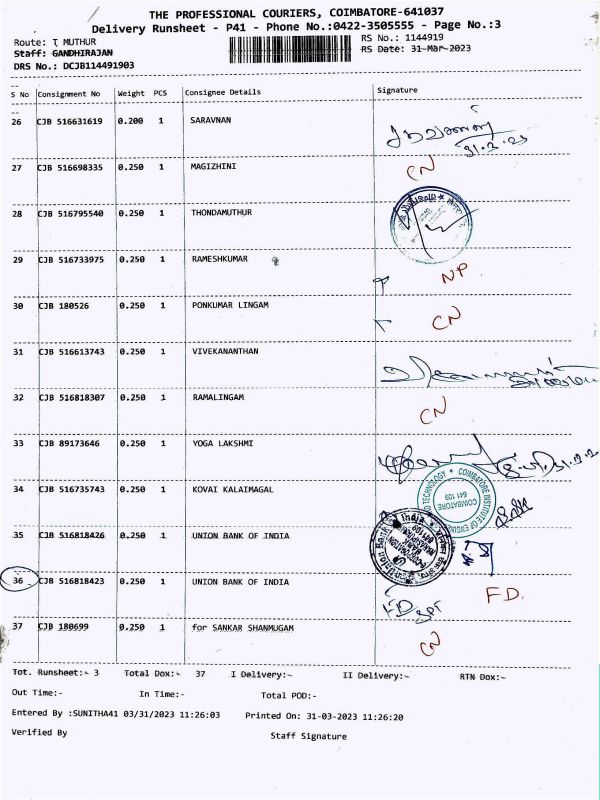 THE PROFESSIONAL COURIERS, COIMBATORE-641037
Delivery Runsheet - P41 - Phone No.:0422-3505555 - Page No.:3
Route: T MUTHUR
RS No.: 1144919
Staff: GANDHIRAJAN
RS Date: 31-Mar-2023
DRS No.: DCJB114491903
S No Consignment No Weight PCS Consignee Details Signature
26 CJB 516631619 0.200 1 SARAVNAN
27 CJB 516698335 0.250 1 MAGIZHINI CN
28 CJB 516795540 0.250 1 THONDAMUTHUR
29 CJB 516733975 0.250 1 RAMESHKUMAR NP
30 CJB 180526 0.250 1 PONKUMAR LINGAM CN
31 CJB 516613743 0.250 1 VIVEKANANTHAN
32 CJB 516818307 0.250 1 RAMALINGAM CN
33 CJB 89173646 0.250 1 YOGA LAKSHMI
34 CJB 516735743 0.250 1 KOVAI KALAIMAGAL
COIMBATORE INSTITUTE OF ENGINEERING AND TECHNOLOGY
COIMBATORE
641 109
35 CJB 516818426 0.250 1 UNION BANK OF INDIA
36 CJB 516818423 0.250 1 UNION BANK OF INDIA FD FD.
37 CJB 180699 0.250 1 for SANKAR SHANMUGAM CN
Tot. Runsheet:- 3 Total Dox:- 37 I Delivery:- II Delivery:- RTN Dox:-
Out Time:- In Time:- Total POD:-
Entered By :SUNITHA41 03/31/2023 11:26:03 Printed On: 31-03-2023 11:26:20
Verified By Staff Signature